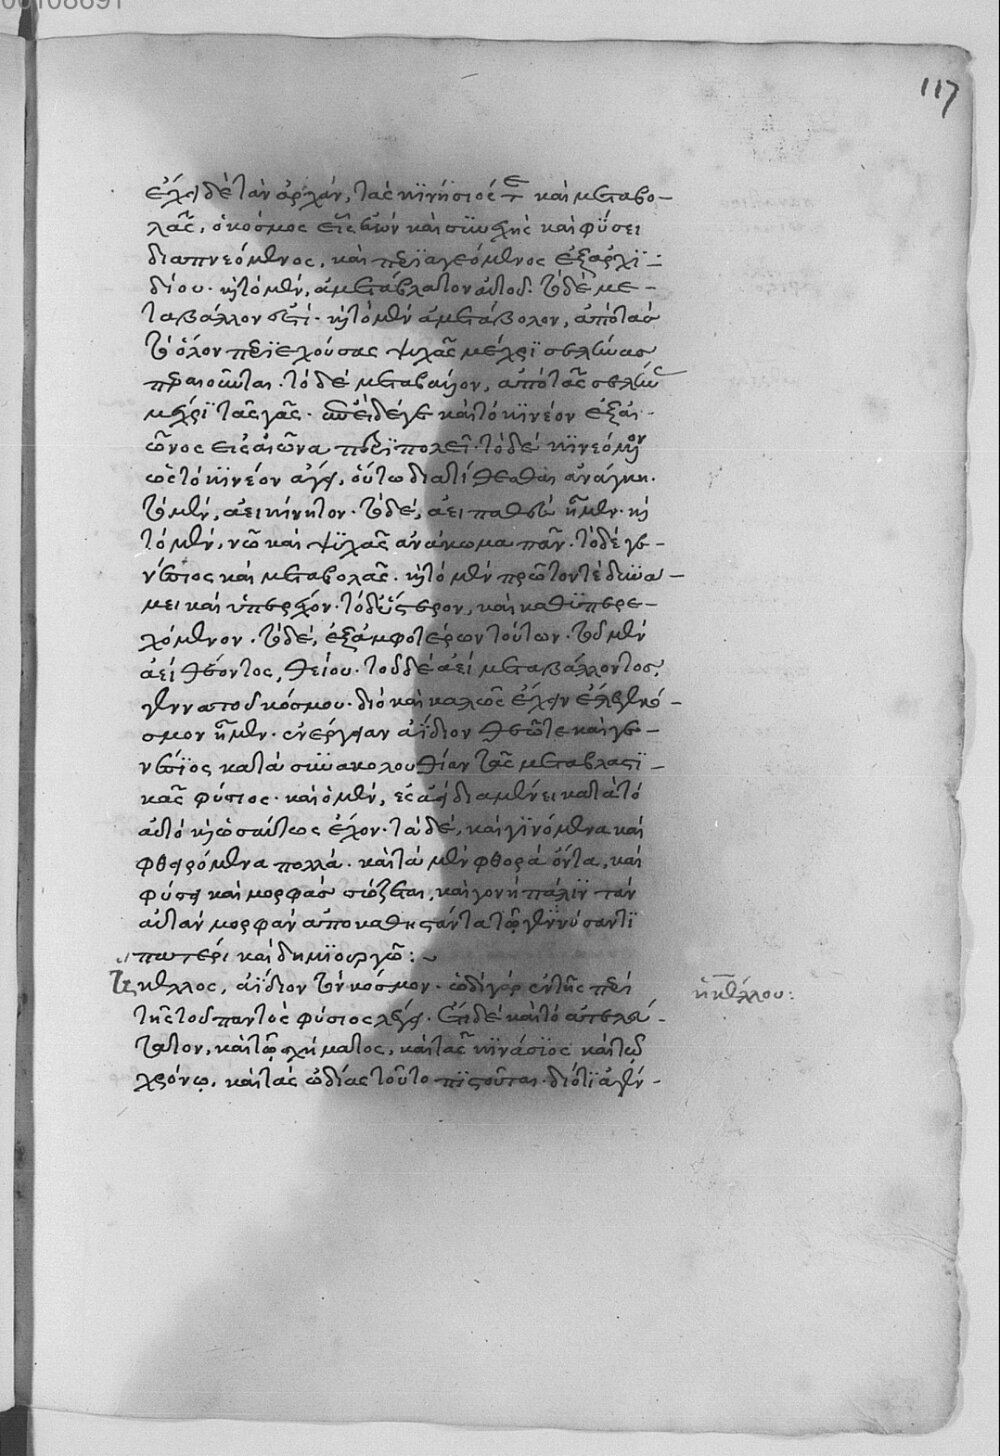 117
ἔχει δὲ τὰν ἀρχάν, τᾶς κινήσιός τε καὶ μεταβο-
λᾶς, ὁ κόσμος εἷς ἐὼν καὶ συνεχὴς καὶ φύσει
διαπνεόμενος, καὶ περιαγεόμενος ἐξ ἀρχι-
δίου. καὶ τὸ μὲν, ἀμετάβλατον αὐτοῦ. τὸ δὲ με-
ταβάλλον ἐστί. καὶ τὸ μὲν ἀμετάβολον, ἀπὸ τᾶς
τὸ ὅλον περιεχούσας ψυχᾶς μέχρι σελάνας
περαιοῦνται. τὸ δὲ μεταβαῖνον, ἀπὸ τᾶς σελάν
μέχρι τᾶς γᾶς. ἐπεὶ δέ γε καὶ τὸ κινέον ἐξ αἰ-
ῶνος εἰς αἰῶνα περιπολεῖ. τὸ δὲ κινεόμενον
ὡς τὸ κινέον ἄγει, οὕτω διατίθεσθαι ἀνάγκη.
τὸ μὲν, ἀεικίνητον. τὸ δὲ, ἀειπαθὲς ἦμεν. καὶ
τὸ μὲν, νῶ καὶ ψυχᾶς ἀνάκωμα πᾶν. τὸ δὲ γε-
νέσιος καὶ μεταβολᾶς. καὶ τὸ μὲν πρῶτόν τε δυνά-
μει καὶ ὑπερέχον. τὸ δ' ὕστερον, καὶ καθυπερε-
χόμενον. τὸ δὲ, ἐξ ἀμφοτέρων τούτων. τοῦ μὲν
ἀεὶ θέοντος, θείου. τοῦ δὲ ἀεὶ μεταβάλλοντος,
γεννατοῦ κόσμου. διὸ καὶ καλῶς ἔχειν ἔλεγε κό-
σμον ἦμεν. ἐνέργειαν ἀΐδιον θεῶ τε καὶ γε-
νέσιος κατὰ συνακολουθίαν τᾶς μεταβλατι-
κᾶς φύσιος. καὶ ὁ μὲν, ἐς ἀεὶ διαμένει κατὰ τὸ
αὐτὸ καὶ ὡσαύτως ἔχον. τὰ δὲ, καὶ γινόμενα καὶ
φθειρόμενα πολλά. καὶ τὰ μὲν φθορᾷ ὄντα, καὶ
φύσει καὶ μορφὰς σώζεται, καὶ γονῇ πάλιν τὰν
αὐτὰν μορφὰν ἀποκαθιστάντα τῷ γεννήσαντι
πατέρι καὶ δημιουργῷ:~
Ἔκελλος, ἀΐδιον τὸν κόσμον. ὡδὶ γὰρ ἐν τῆς περὶ
τῆς τοῦ παντὸς φύσιος λέγει. Ἔτι δὲ καὶ τὸ ἀτελεύ-
τατον, καὶ τῷ σχήματος, καὶ τᾶς κινάσιος καὶ τῶ
χρόνῳ, καὶ τᾶς ὠδίας τοῦτο πιστοῦται. διότι ἀγέν-
ἠκέλλου: